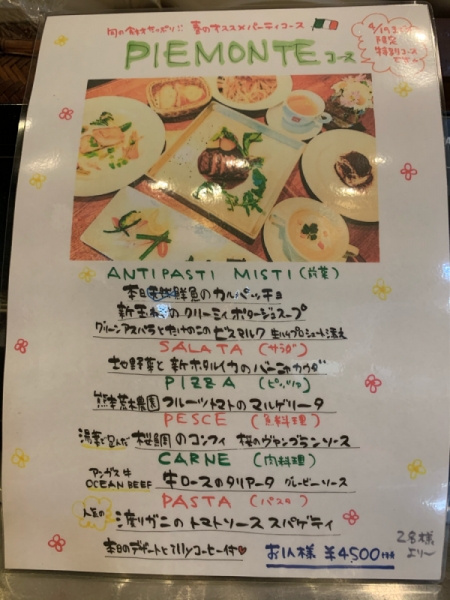 旬の食材たっぷり!! 春のオススメパーティコース
PIEMONTE コース
限定
特別コース
です
ANTIPASTI MISTI (前菜)
本日 鮮魚のカルパッチョ
新玉ねぎのクリーミィポタージュスープ
グリーンアスパラとたけのこのビスマルク 生ハムプロシュート添え
SALATA (サラダ)
地野菜と新ホタルイカのバーニャカウダ
PIZZA (ピッツァ)
熊本荒木農園フルーツトマトのマルゲリータ
PESCE (魚料理)
桜鯛のコンフィ 桜のヴァンブランソース
CARNE (肉料理)
アンガス牛
OCEAN BEEF 牛ロースのタリアータ グレービーソース
PASTA (パスタ)
人気の 渡りガニのトマトソース スパゲティ
本日のデザートとillyコーヒー付
お1人様 ¥4,500
2名様
より〜